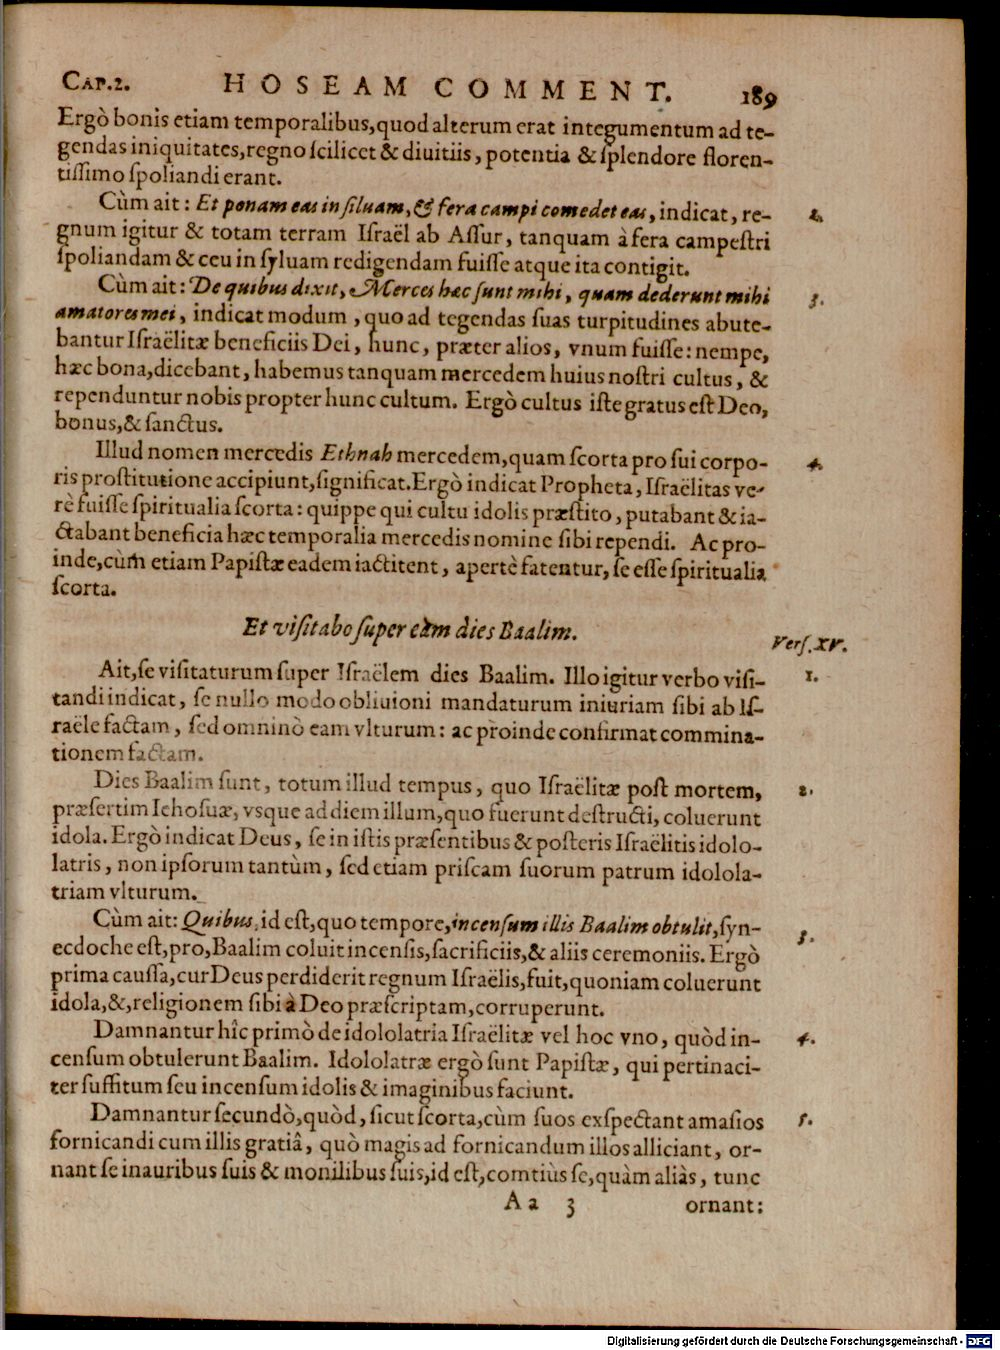 CAP.2. HOSEAM COMMENT. 189
Ergò bonis etiam temporalibus,quod alterum erat integumentum ad te-
gendas iniquitates,regno ſcilicet & diuitiis, potentia & ſplendore floren-
tiſſimo ſpoliandi erant.
Cùm ait: Et ponam eas in ſiluam, & fera campi comedet eas, indicat, re- 2.
gnum igitur & totam terram Iſraël ab Aſſur, tanquam à fera campeſtri
ſpoliandam & ceu in ſyluam redigendam fuiſſe atque ita contigit.
Cùm ait: De quibus dixit, Merces hæc ſunt mihi, quam dederunt mihi 3.
amatores mei, indicat modum, quo ad tegendas ſuas turpitudines abute-
bantur Iſraëlitæ beneficiis Dei, hunc, præter alios, vnum fuiſſe: nempe,
hæc bona,dicebant, habemus tanquam mercedem huius noſtri cultus, &
rependuntur nobis propter hunc cultum. Ergò cultus iſte gratus eſt Deo,
bonus,& ſanctus.
Illud nomen mercedis Ethnah mercedem,quam ſcorta pro ſui corpo- 4.
ris proſtitutione accipiunt,ſignificat.Ergò indicat Propheta, Iſraëlitas ve-
rè fuiſſe ſpiritualia ſcorta: quippe qui cultu idolis præſtito, putabant & ia-
ctabant beneficia hæc temporalia mercedis nomine ſibi rependi. Ac pro-
inde,cùm etiam Papiſtæ eadem iactitent, apertè fatentur, ſe eſſe ſpiritualia
ſcorta.
Et viſitabo ſuper eam dies Baalim. Verſ.XV.
Ait,ſe viſitaturum ſuper Iſraëlem dies Baalim. Illo igitur verbo viſi- 1.
tandi indicat, ſe nullo modo obliuioni mandaturum iniuriam ſibi ab Iſ-
raële factam, ſed omninò eam vlturum: ac proinde confirmat commina-
tionem factam.
Dies Baalim ſunt, totum illud tempus, quo Iſraëlitæ poſt mortem, 2.
præſertim Iehoſuæ, vsque ad diem illum,quo fuerunt deſtructi, coluerunt
idola. Ergò indicat Deus, ſe in iſtis præſentibus & poſteris Iſraëlitis idolo-
latris, non ipſorum tantùm, ſed etiam priſcam ſuorum patrum idolola-
triam vlturum.
Cùm ait: Quibus, id eſt,quo tempore,incenſum illis Baalim obtulit,ſyn- 3.
ecdoche eſt,pro,Baalim coluit incenſis,ſacrificiis,& aliis ceremoniis. Ergò
prima cauſſa,cur Deus perdiderit regnum Iſraëlis,fuit,quoniam coluerunt
idola,&,religionem ſibi à Deo præſcriptam,corruperunt.
Damnantur hîc primò de idololatria Iſraëlitæ vel hoc vno, quòd in- 4.
cenſum obtulerunt Baalim. Idololatræ ergò ſunt Papiſtæ, qui pertinaci-
ter ſuffitum ſeu incenſum idolis & imaginibus faciunt.
Damnantur ſecundò,quòd, ſicut ſcorta,cùm ſuos exſpectant amaſios 5.
fornicandi cum illis gratiâ, quò magis ad fornicandum illos alliciant, or-
nant ſe inauribus ſuis & monilibus ſuis,id eſt,comtiùs ſe,quàm aliàs, tunc
Aa 3 ornant:
Digitalisierung gefördert durch die Deutsche Forschungsgemeinschaft - DFG